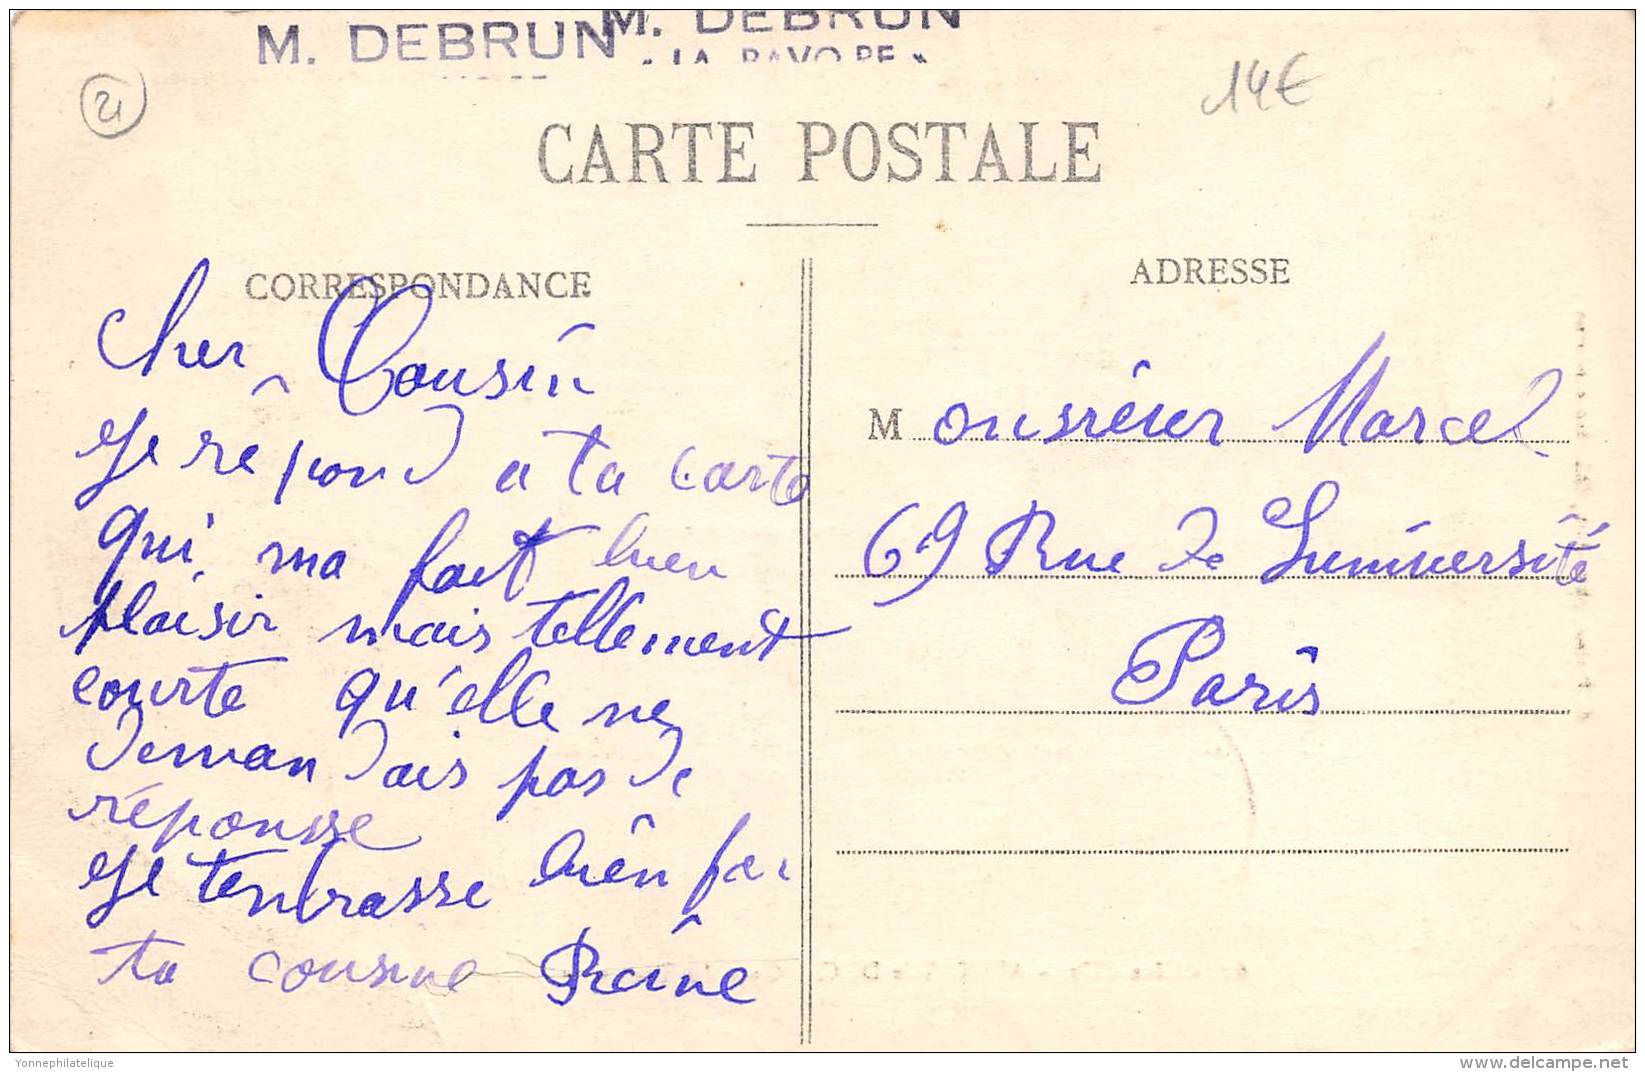 M. DEBRUN
M. DEBRUN
21
14€
CARTE POSTALE
CORRESPONDANCE
ADRESSE
Cher Cousin
Je répond a ta carte
qui ma fait bien
plaisir mais tellement
courte qu'elle ne
demandais pas de
réponsse
Je tembrasse bien for
ta cousine Reine
Monsieur Marcel
69 Rue de Luniversité
Paris
Yonnephilatelique
www.delcampe.net